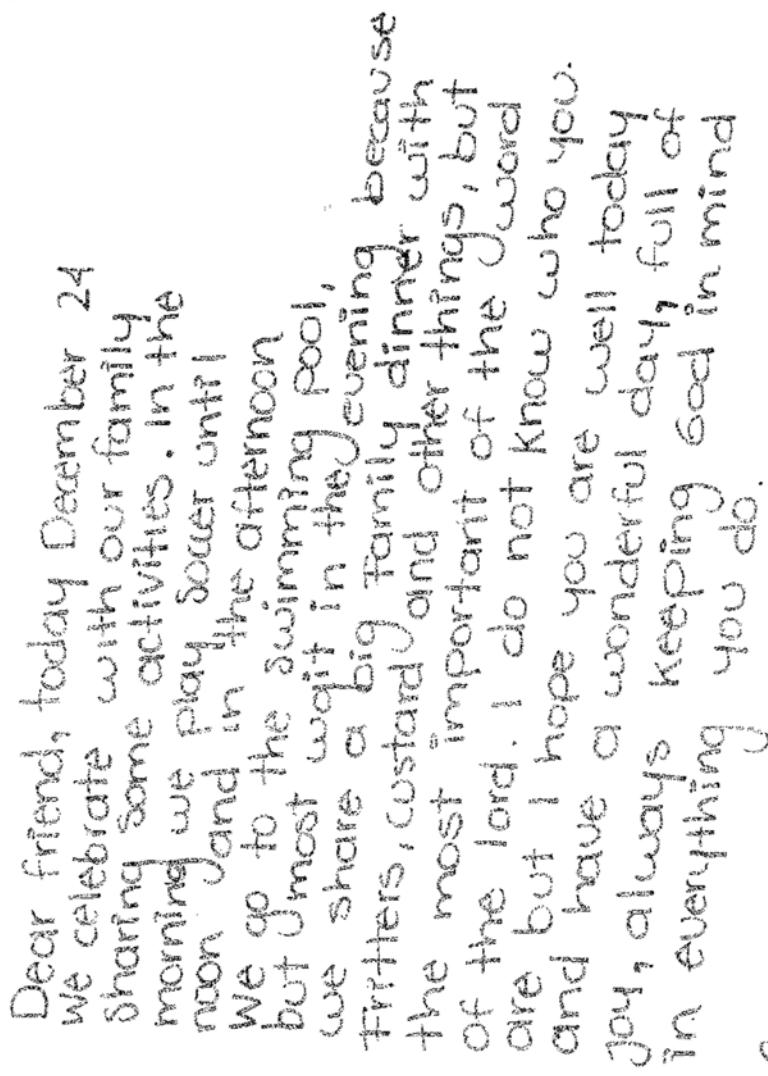 Dear friend, today December 24
we celebrate with our family
Sharing some activities. In the
morning we play Soccer until
noon and in the afternoon
we go to the swimming pool,
but most wait in the evening because
we share a big family dinner with
Fritters, custard and other things, but
the most important of the word
of the lord. I do not know who you.
are but I hope you are well today
and have a wonderful day, full of
joy, always keeping God in mind
in everything you do.